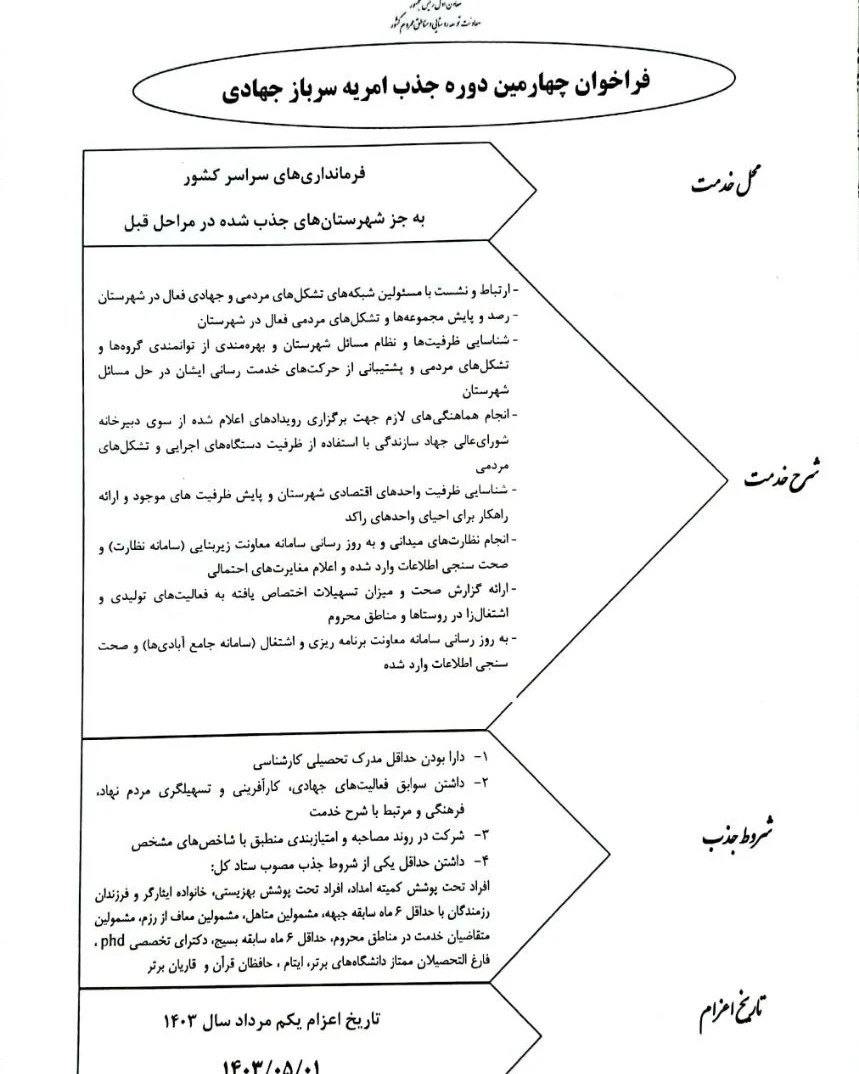 معاون اول رئیس جمهور
معاونت توسعه روستایی و مناطق محروم کشور
فراخوان چهارمین دوره جذب امریه سرباز جهادی
محل خدمت
فرمانداری‌های سراسر کشور
به جز شهرستان‌های جذب شده در مراحل قبل
شرح خدمت
- ارتباط و نشست با مسئولین شبکه‌های تشکل‌های مردمی و جهادی فعال در شهرستان
- رصد و پایش مجموعه‌ها و تشکل‌های مردمی فعال در شهرستان
- شناسایی ظرفیت‌ها و نظام مسائل شهرستان و بهره‌مندی از توانمندی گروه‌ها و
تشکل‌های مردمی و پشتیبانی از حرکت‌های خدمت رسانی ایشان در حل مسائل
شهرستان
- انجام هماهنگی‌های لازم جهت برگزاری رویدادهای اعلام شده از سوی دبیرخانه
شورای‌عالی جهاد سازندگی با استفاده از ظرفیت دستگاه‌های اجرایی و تشکل‌های
مردمی
- شناسایی ظرفیت واحدهای اقتصادی شهرستان و پایش ظرفیت های موجود و ارائه
راهکار برای احیای واحدهای راکد
- انجام نظارت‌های میدانی و به روز رسانی سامانه معاونت زیربنایی (سامانه نظارت) و
صحت سنجی اطلاعات وارد شده و اعلام مغایرت‌های احتمالی
- ارائه گزارش صحت و میزان تسهیلات اختصاص یافته به فعالیت‌های تولیدی و
اشتغال‌زا در روستاها و مناطق محروم
- به روز رسانی سامانه معاونت برنامه ریزی و اشتغال (سامانه جامع آبادی‌ها) و صحت
سنجی اطلاعات وارد شده
شروط جذب
۱- دارا بودن حداقل مدرک تحصیلی کارشناسی
۲- داشتن سوابق فعالیت‌های جهادی، کارآفرینی و تسهیلگری مردم نهاد،
فرهنگی و مرتبط با شرح خدمت
۳- شرکت در روند مصاحبه و امتیازبندی منطبق با شاخص‌های مشخص
۴- داشتن حداقل یکی از شروط جذب مصوب ستاد کل:
افراد تحت پوشش کمیته امداد، افراد تحت پوشش بهزیستی، خانواده ایثارگر و فرزندان
رزمندگان با حداقل ۶ ماه سابقه جبهه، مشمولین متاهل، مشمولین معاف از رزم، مشمولین
متقاضیان خدمت در مناطق محروم، حداقل ۶ ماه سابقه بسیج، دکترای تخصصی phd ،
فارغ التحصیلان ممتاز دانشگاه‌های برتر، ایتام ، حافظان قرآن و قاریان برتر
تاریخ اعزام
تاریخ اعزام یکم مرداد سال ۱۴۰۳
۱۴۰۳/۰۵/۰۱